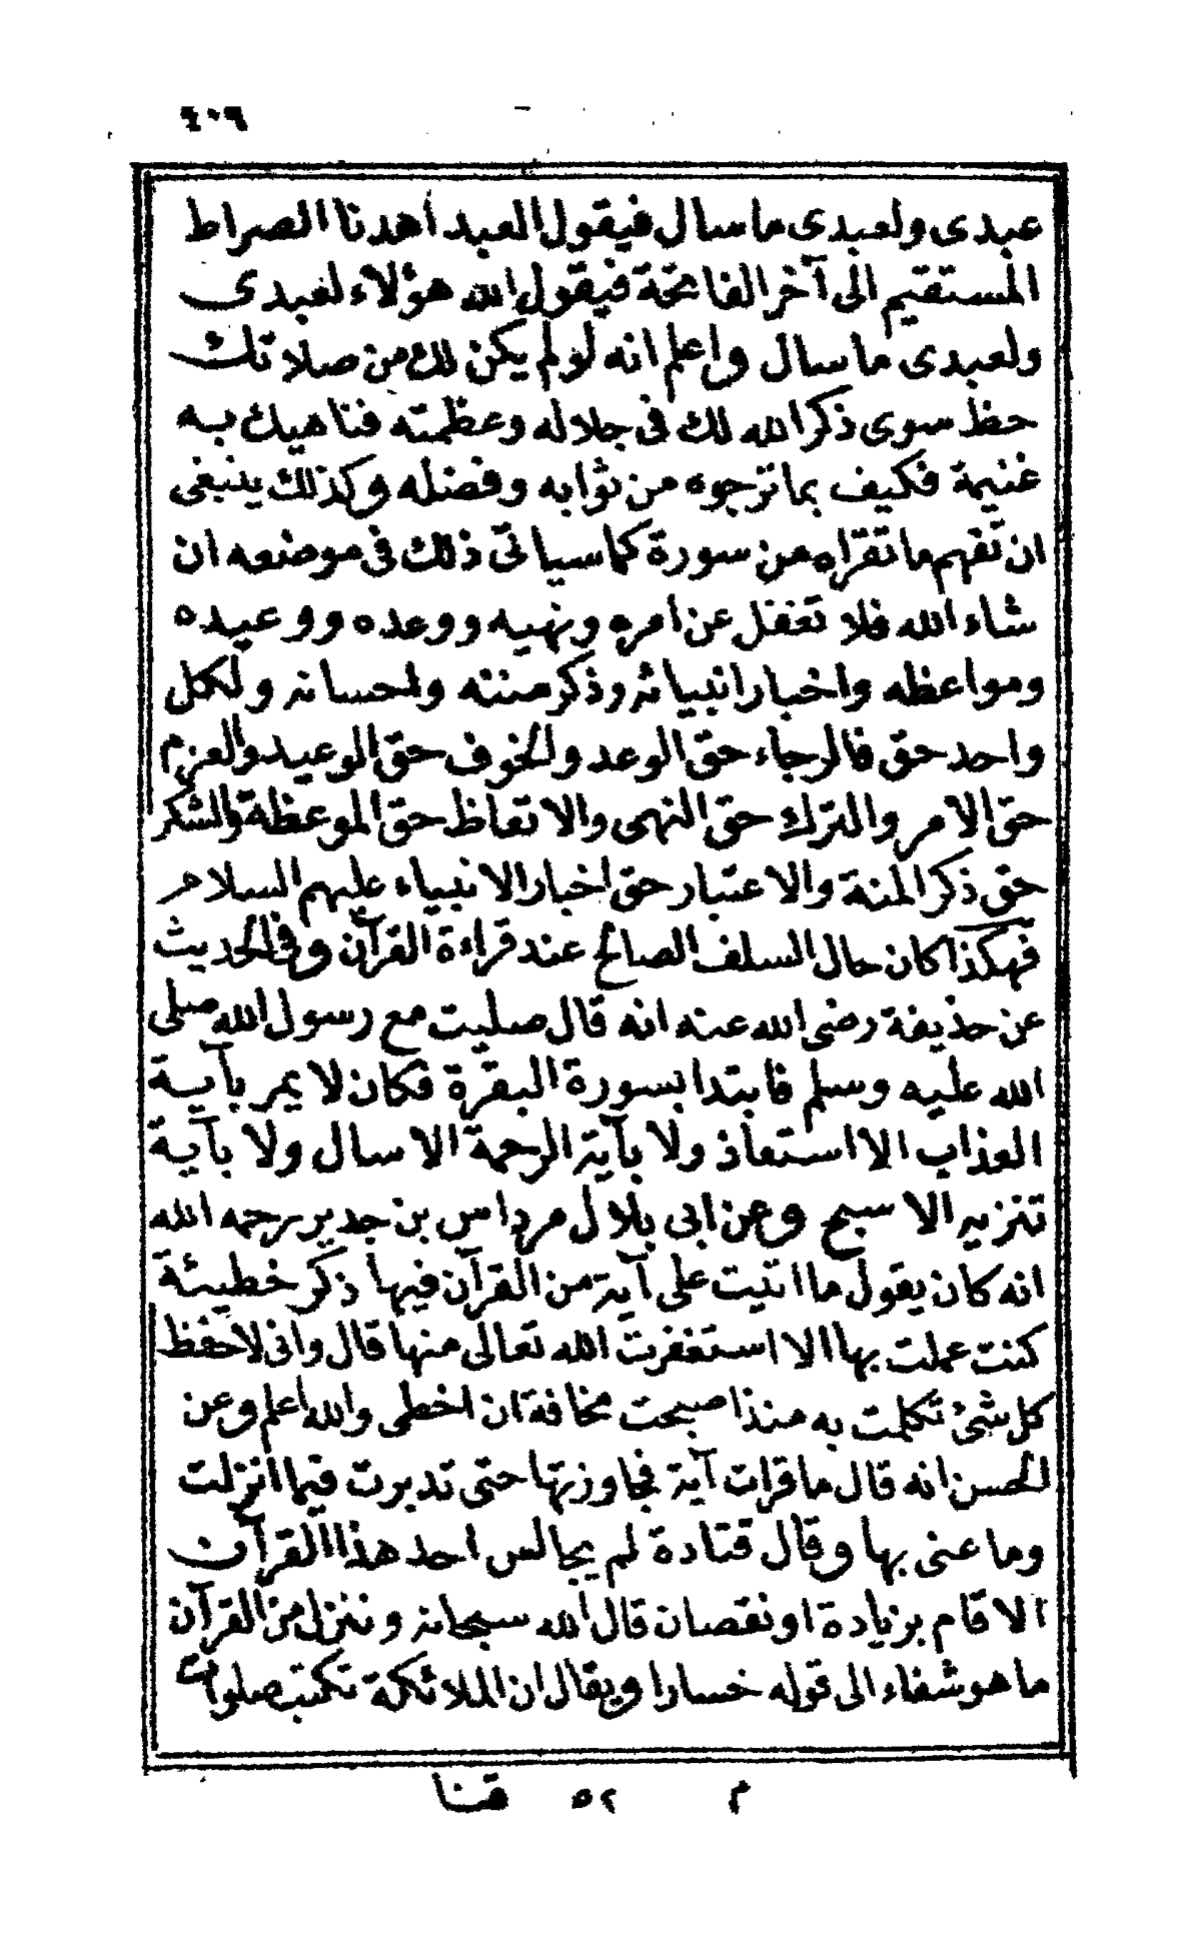 ٤٠٩
عبدى ولعبدى ما سال فيقول العبد أهدنا الصراط
المستقيم الى آخر الفاتحة فيقول الله هؤلاء لعبدى
ولعبدى ما سال واعلم انه لو لم يكن لك من صلاتك
حظ سوى ذكر الله لك فى جلاله وعظمته فناهيك به
غنيمة فكيف بما ترجوه من ثوابه وفضله وكذلك ينبغى
ان تفهم ما تقراه من سورة كما سياتى ذلك فى موضعه ان
شاء الله فلا تغفل عن امره ونهيه ووعده ووعيده
ومواعظه واخبار انبيائه وذكر مننه واحسانه ولكل
واحد حق فالرجاء حق الوعد والخوف حق الوعيد والعزم
حق الامر والترك حق النهى والاتعاظ حق الموعظة والشكر
حق ذكر المنة والاعتبار حق اخبار الانبياء عليهم السلام
فهكذا كان حال السلف الصالح عند قراءة القرآن وفى الحديث
عن حذيفة رضى الله عنه انه قال صليت مع رسول الله صلى
الله عليه وسلم فابتدا بسورة البقرة فكان لا يمر بآية
العذاب الا استعاذ ولا بآية الرحمة الا سال ولا بآية
تنزيه الا سبح وعن ابى بلال مرداس بن جدير رحمه الله
انه كان يقول ما اتيت على آية من القرآن فيها ذكر خطيئة
كنت عملت بها الا استغفرت الله تعالى منها قال وانى لاحفظ
كل شئ تكلمت به منذ اصبحت مخافة ان اخطى والله اعلم وعن
الحسن انه قال ما قرات آية فجاوزتها حتى تدبرت فيما انزلت
وما عنى بها وقال قتادة لم يجالس احد هذا القرآن
الا قام بزيادة او نقصان قال الله سبحانه وننزل من القرآن
ما هو شفاء الى قوله خسارا ويقال ان الملائكة تكتب صلوات
م ٥٢ قنا